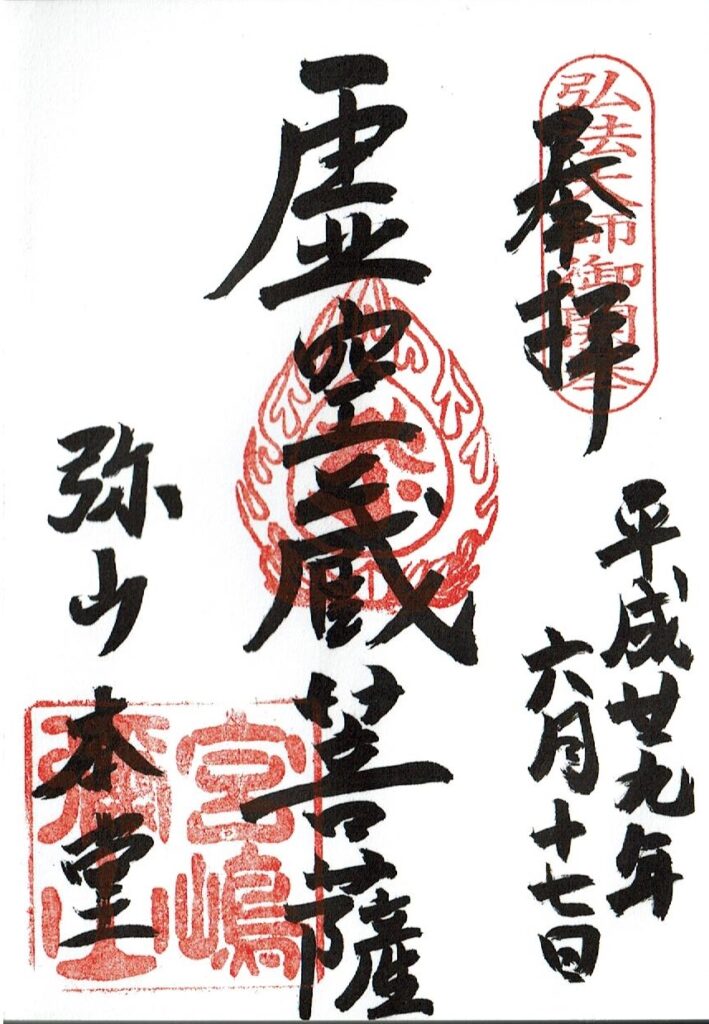 弘法大師御開基
奉拝
平成廿九年
六月十七日
虚空蔵菩薩
弥山本堂
宮嶋
彌山